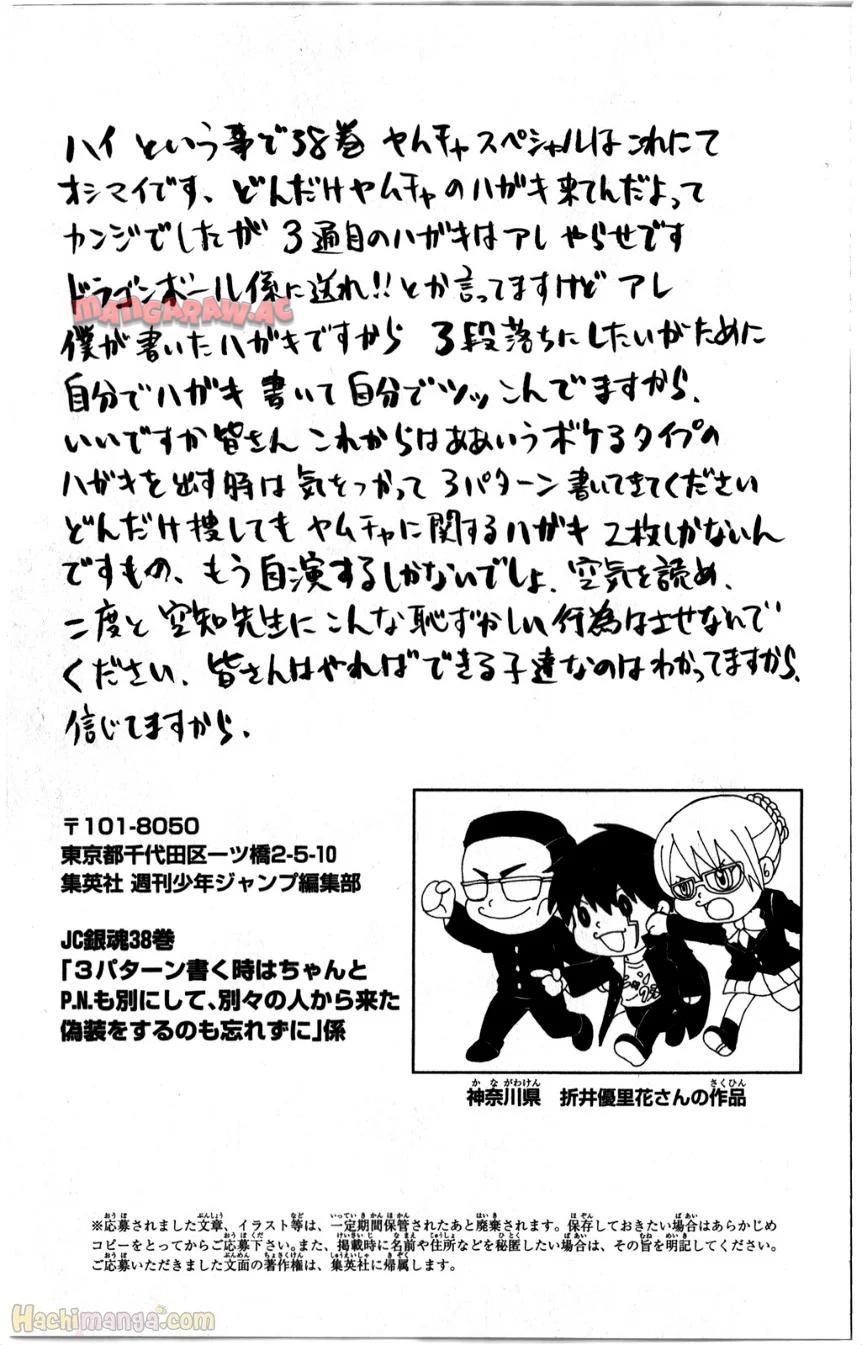 ハイ という事で38巻 ヤムチャスペシャルはこれにて
オシマイです、どんだけヤムチャのハガキ来てんだよって
カンジでしたが 3通目のハガキはアレ やらせです
ドラゴンボール係に送れ!!とか言ってますけど アレ
MANGARAW.AC
僕が書いたハガキですから 3段落ちにしたいがために
自分でハガキ 書いて自分でツッこんでますから、
いいですか皆さん これからはああいうボケるタイプの
ハガキを出す時は気をつかって 3パターン書いてきてください
どんだけ捜しても ヤムチャに関するハガキ 2枚しかないん
ですもの、もう自演するしかないでしょ、空気を読め、
二度と空知先生にこんな恥ずかしい行為はさせないで
ください、皆さんはやればできる子達なのはわかってますから、
信じてますから、
〒101-8050
東京都千代田区一ツ橋2-5-10
集英社 週刊少年ジャンプ編集部
JC銀魂38巻
「3パターン書く時はちゃんと
P.N.も別にして、別々の人から来た
偽装をするのも忘れずに」係
神奈川県 折井優里花さんの作品
※応募されました文章、イラスト等は、一定期間保管されたあと廃棄されます。保存しておきたい場合はあらかじめ
コピーをとってからご応募下さい。また、掲載時に名前や住所などを秘匿したい場合は、その旨を明記してください。
ご応募いただきました文面の著作権は、集英社に帰属します。
Hachimanga.com